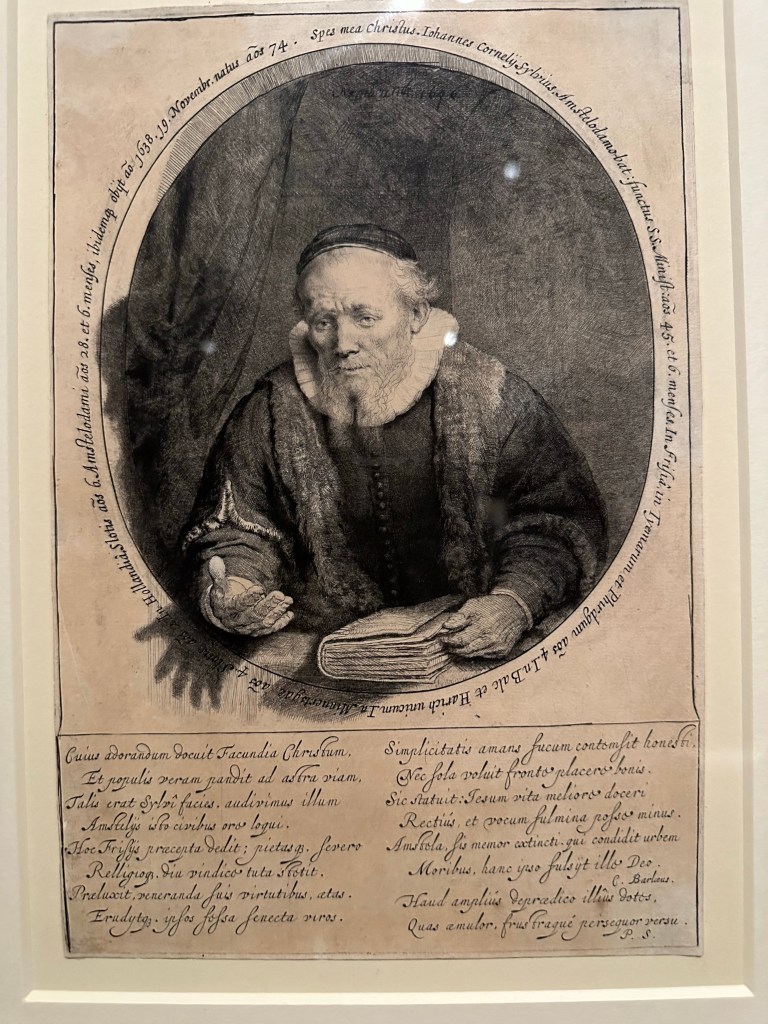 Spes mea Christus. Iohannes Cornelij Sylvius, Amstelodamobat: functus S.S. Minist: aõs 45. et 6. menses. In Frisiâ, in Tyenarum et Phirdgum aõs 4. In Balc et Harich unicum. In Minnertsgae aõs 4. Slotis aõs 6. Amstelodami aõs 28. et 6. menses, ibidemq, obijt aõ 1638. 19. Novembr. natus aõs 74.
Rembrandt 1646
In Hollandiâ
Cuius adorandum docuit Facundia Christum,
Et populis veram pandit ad astra viam,
Talis erat Sylvî facies. audivimus illum
Amstelijs isto civibus ore loqui.
Hoc Frisijs præcepta dedit; pietasq. severo
Relligioq. diu vindice tuta stetit.
Præluxit, veneranda suis virtutibus, ætas.
Erudytq. ipsos fessa senecta viros.
Simplicitatis amans fucum contemsit honesti,
Nec sola voluit fronte placere bonis.
Sic statuit: Iesum vita meliore doceri
Rectiùs, et vocum fulmina posse minus.
Amstela, sis memor extincti. qui condidit urbem
Moribus, hanc ipso fulsijt ille Deo.
C. Barlæus.
Haud ampliùs deprædico illius dotes,
Quas æmulor, frustraque persequor versu.
P. S.